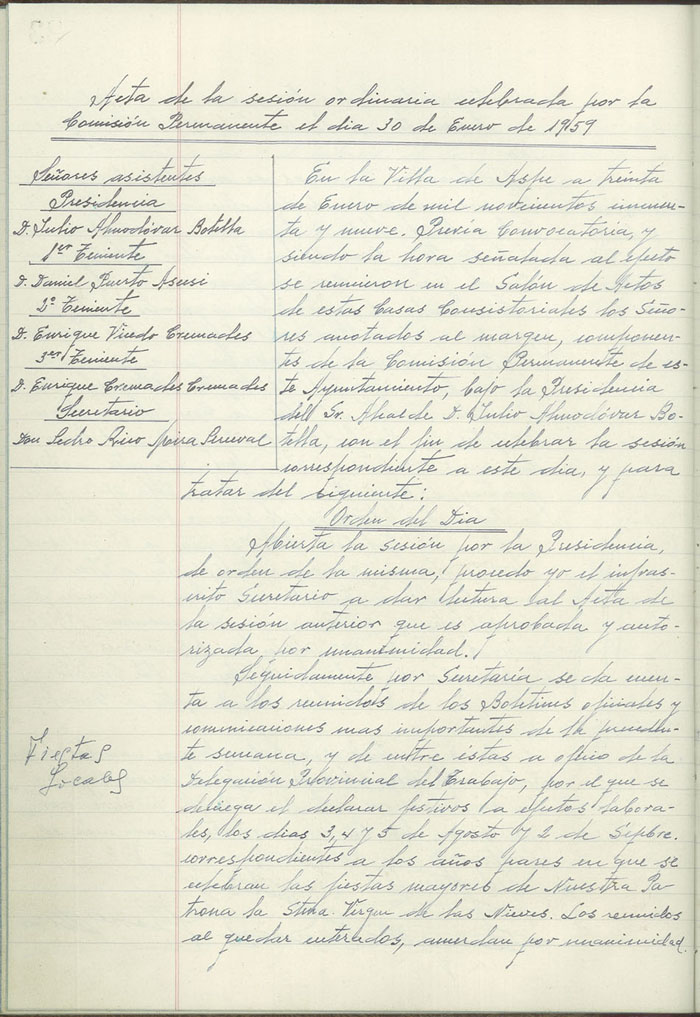 Acta de la sesión ordinaria celebrada por la
Comisión Permanente el dia 30 de Enero de 1959
Señores asistentes
Presidencia
D. Julio Almodóvar Botella
1er Teniente
D. Daniel Puerto Asensi
2º Teniente
D. Enrique Vicedo Cremades
3er Teniente
D. Enrique Cremades Cremades
Secretario
Don Pedro Rico Perceval
En la Villa de Aspe a treinta
de Enero de mil novecientos cincuen-
ta y nueve. Previa Convocatoria, y
siendo la hora señalada al efecto
se reunieron en el Salón de Actos
de estas Casas Consistoriales los Seño-
res anotados al margen, componen-
tes de la Comisión Permanente de es-
te Ayuntamiento, bajo la Presidencia
del Sr. Alcalde D. Julio Almodóvar Bo-
tella, con el fin de celebrar la sesión
correspondiente a este dia, y para
tratar del siguiente:
Orden del Dia
Abierta la sesión por la Presidencia,
de orden de la misma, procedo yo el infras-
crito Secretario a dar lectura al Acta de
la sesión anterior que es aprobada y auto-
rizada por unanimidad.
Seguidamente por Secretaría se da cuen-
ta a los reunidos de los Boletines oficiales y
comunicaciones mas importantes de la preceden-
te semana, y de entre éstas a oficio de la
Delegación Provincial del Trabajo, por el que se
deniega el declarar festivos a efectos labora-
les, los dias 3, 4 y 5 de Agosto y 2 de Sepbre.
correspondientes a los años pares en que se
celebran las fiestas mayores de Nuestra Pa-
trona la Stma. Virgen de las Nieves. Los reunidos
al quedar enterados, acuerdan por unanimidad.
Fiestas
Locales